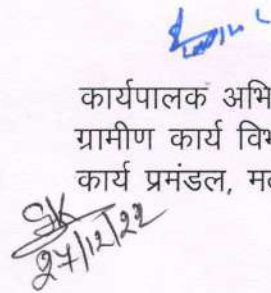 कार्यपालक अभि
ग्रामीण कार्य विभ
कार्य प्रमंडल, म
SK
27/12/22